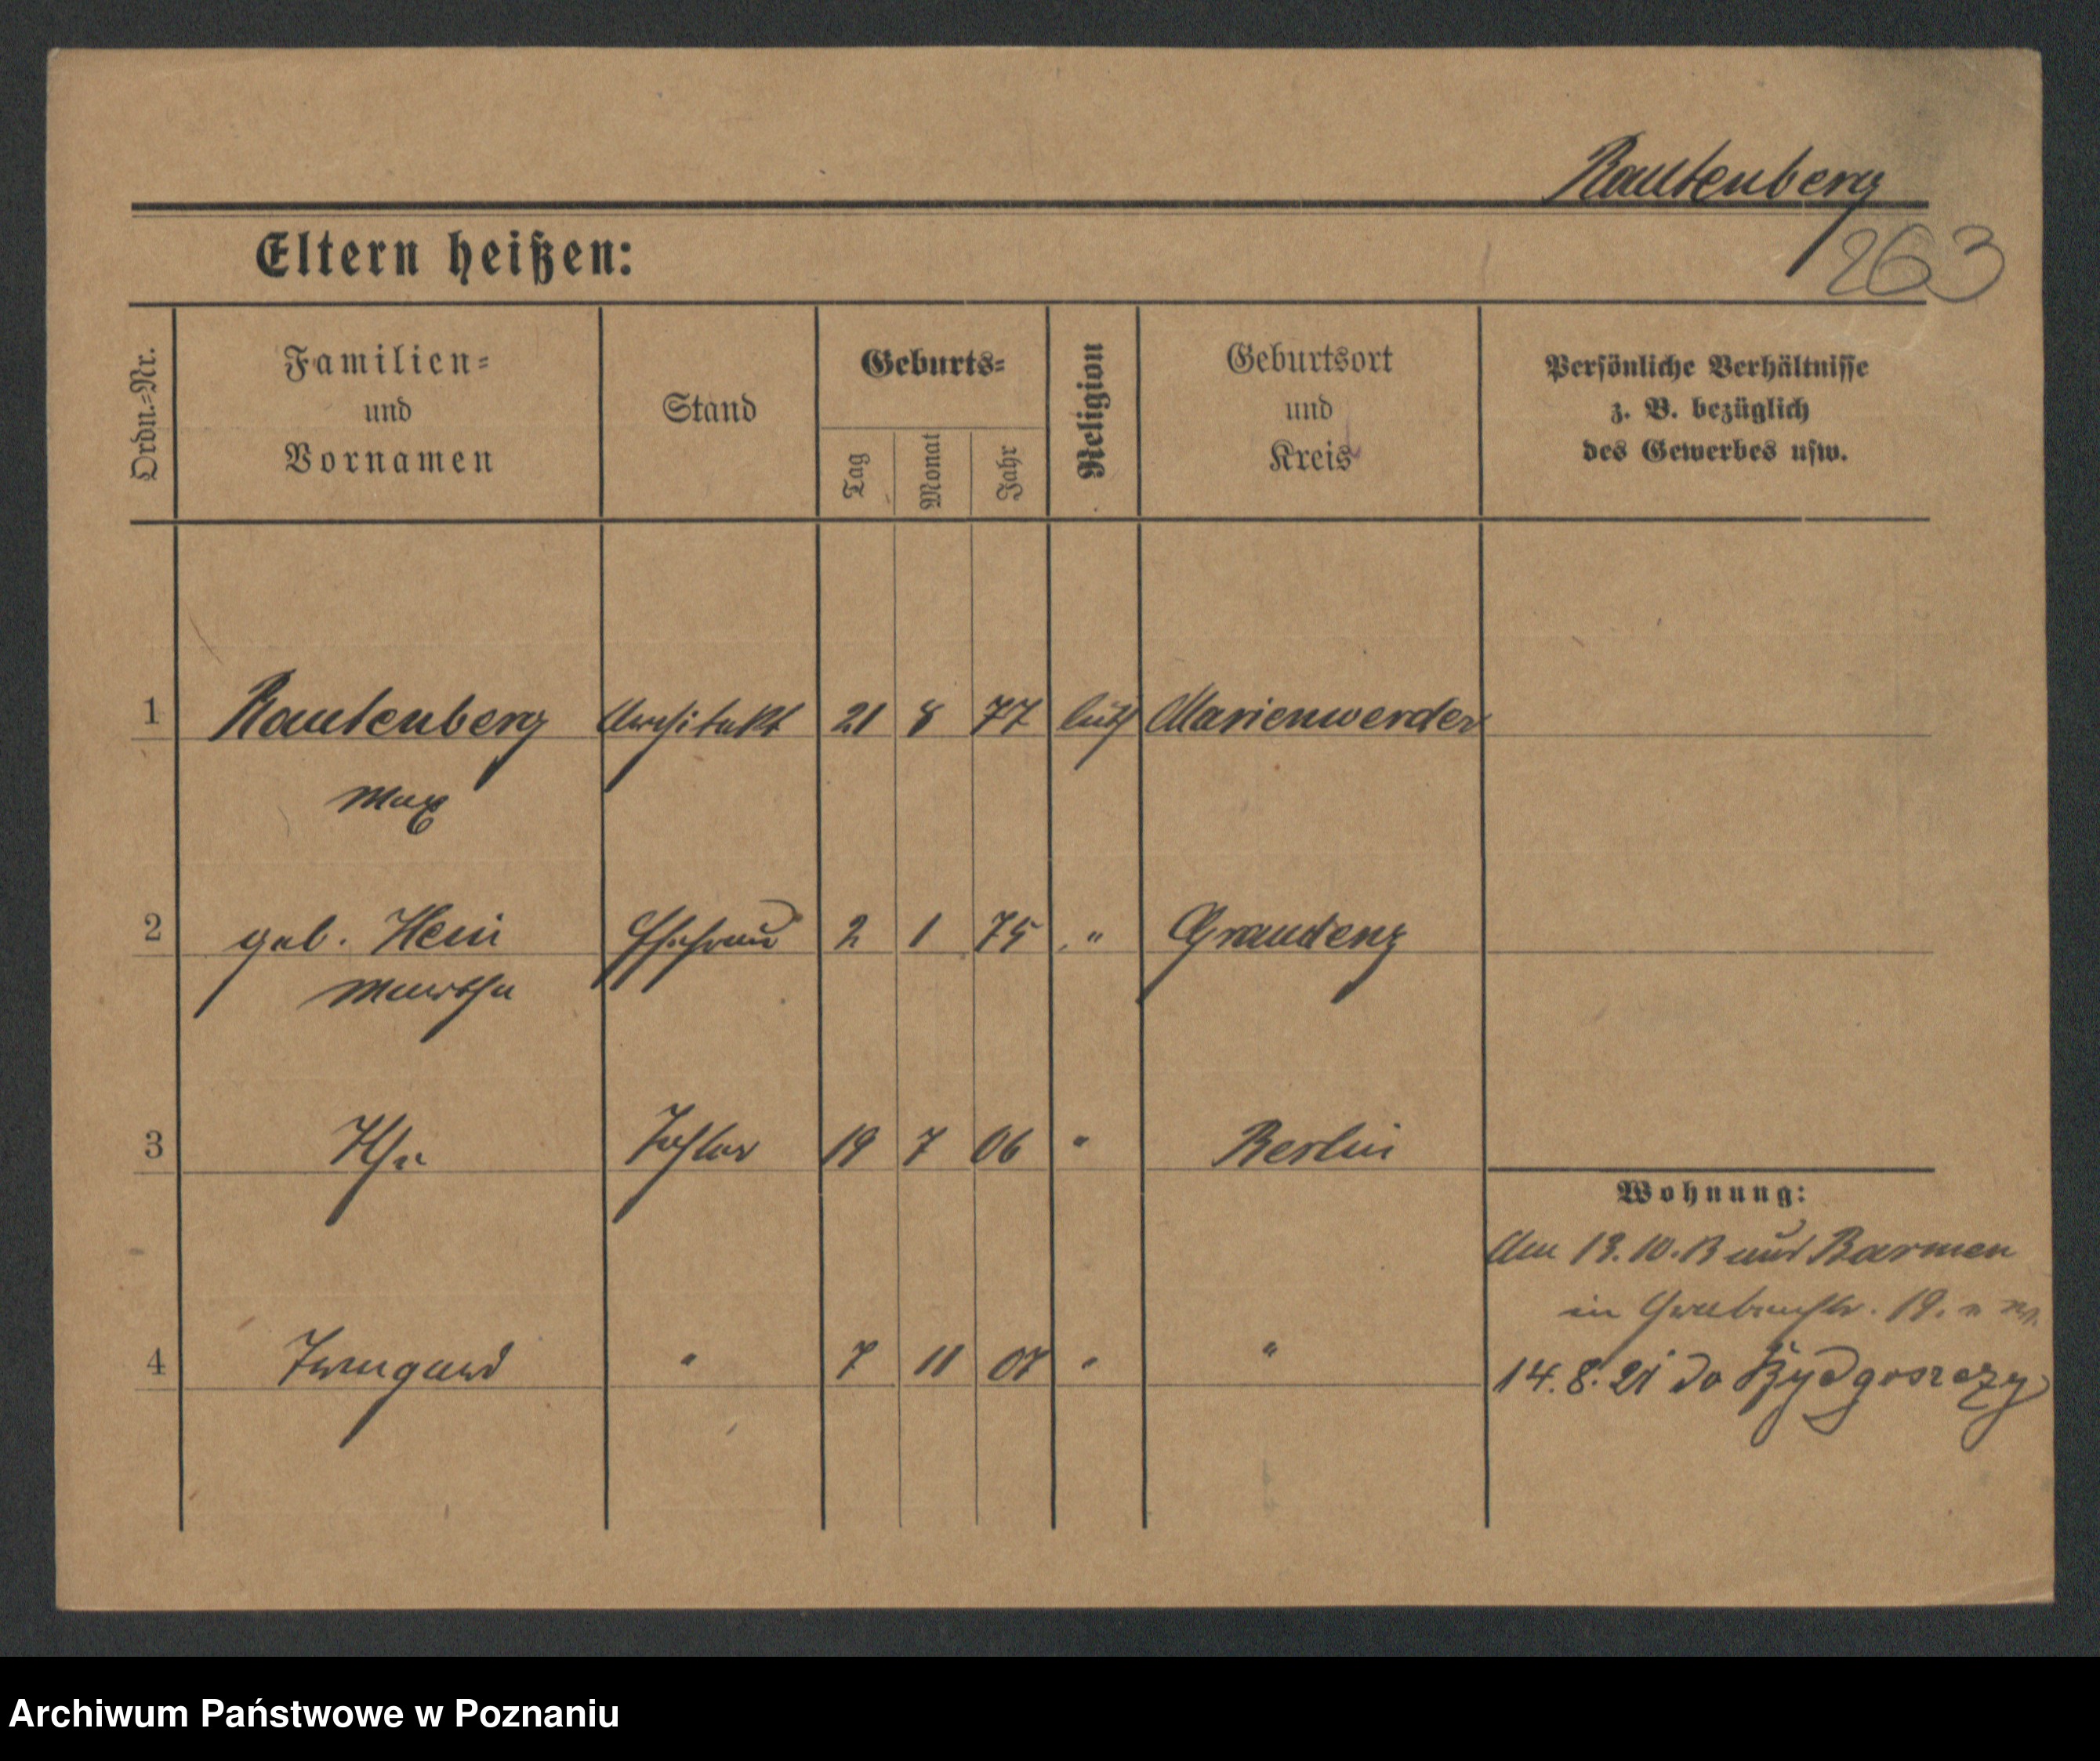 Rautenberg
263
Eltern heißen:
Ordn.-Nr.
Familien- und Vornamen
Stand
Geburts-
Tag
Monat
Jahr
Religion
Geburtsort und Kreis
Persönliche Verhältnisse
z. B. bezüglich
des Gewerbes usw.
1 Rautenberg Architekt 21 8 77 luth Marienwerder
Max
2 geb. Hein Ehefrau 2 1 75 " Graudenz
Martha
3 Ilse Tochter 19 7 06 " Berlin
Wohnung:
Am 13.10.13 aus Barmen
in Grabenstr. 19.
4 Irmgard " 7 11 07 " "
14.8.21 do Bydgoszczy
Archiwum Państwowe w Poznaniu